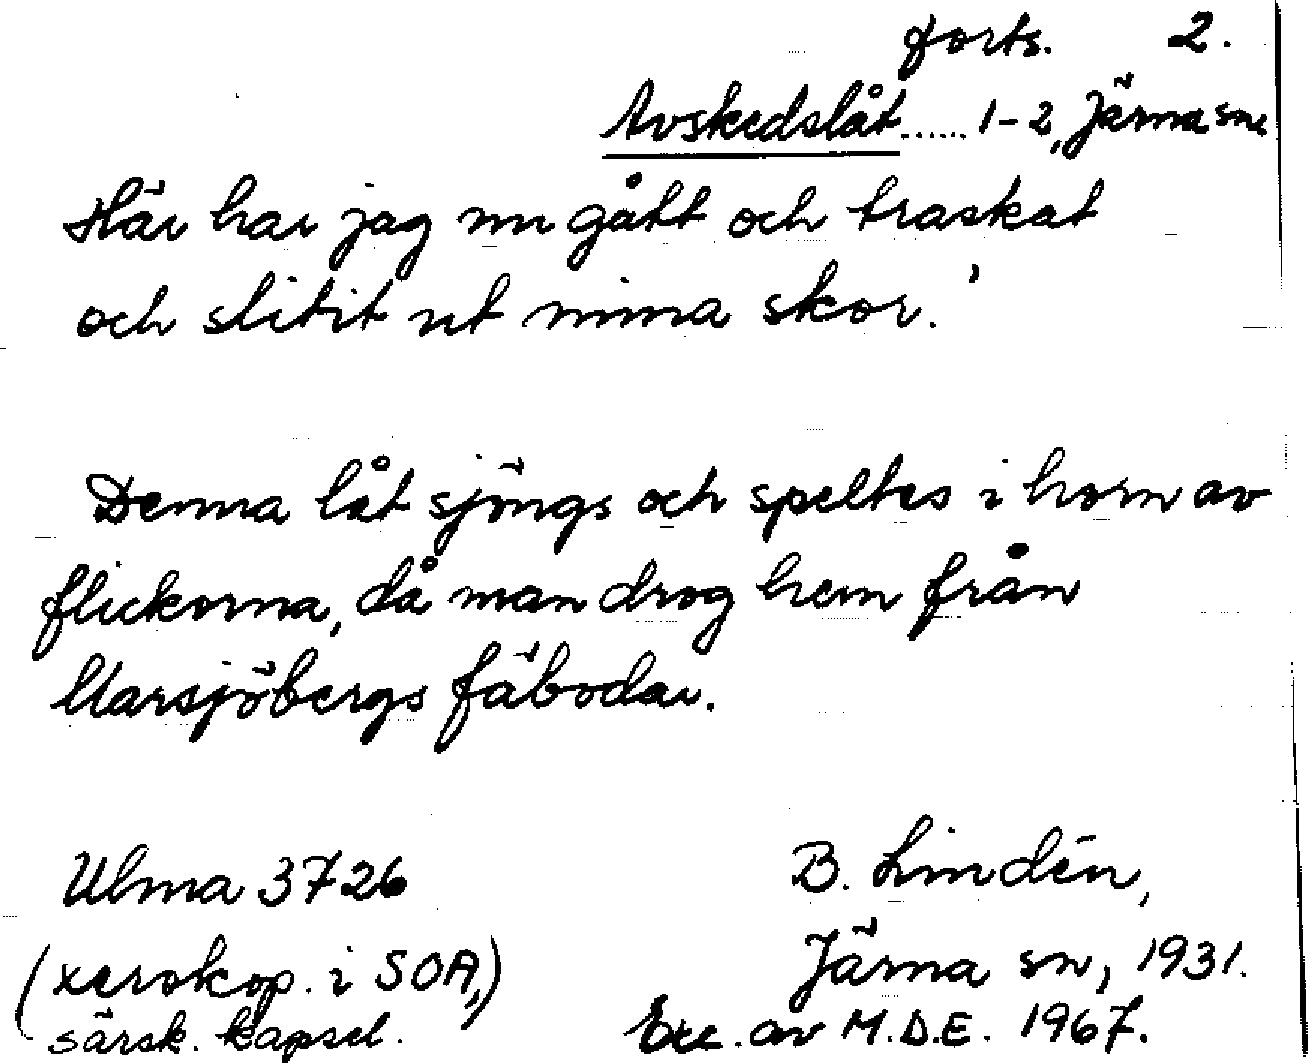 forts. 2.
Avskedslåt ...... 1-2, Järna sn
Här har jag nu gått och traskat
och slitit ut mina skor.'
Denna låt sjöngs och speltes i horn av
flickorna, då man drog hem från
Uarsjöbergs fäbodar.
Ulma 3726
B. Lindén,
(xerokop. i SOA,)
Järna sn, 1931.
särsk. kapsel.
Exc. av M.D.E. 1967.